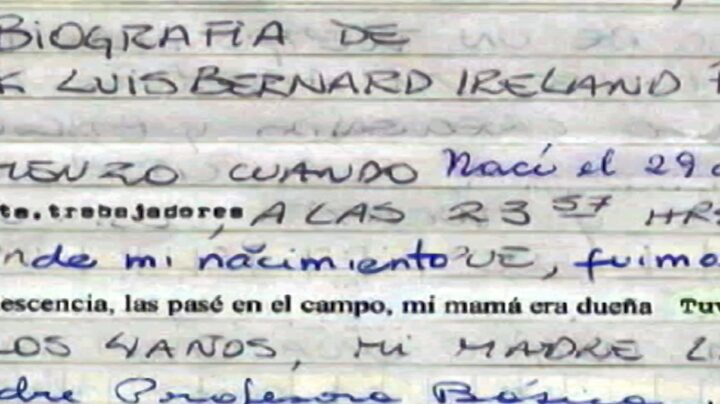 BIOGRAFIA DE
LUIS BERNARD IRELAND
CUANDO Nací el 29
trabajadores, A LAS 23 57 HR
mi nacimiento UE, fuimo
escencia, las pasé en el campo, mi mamá era dueña Tuv
LOS 4 AÑOS, MI MADRE L
dre Profesora Básica